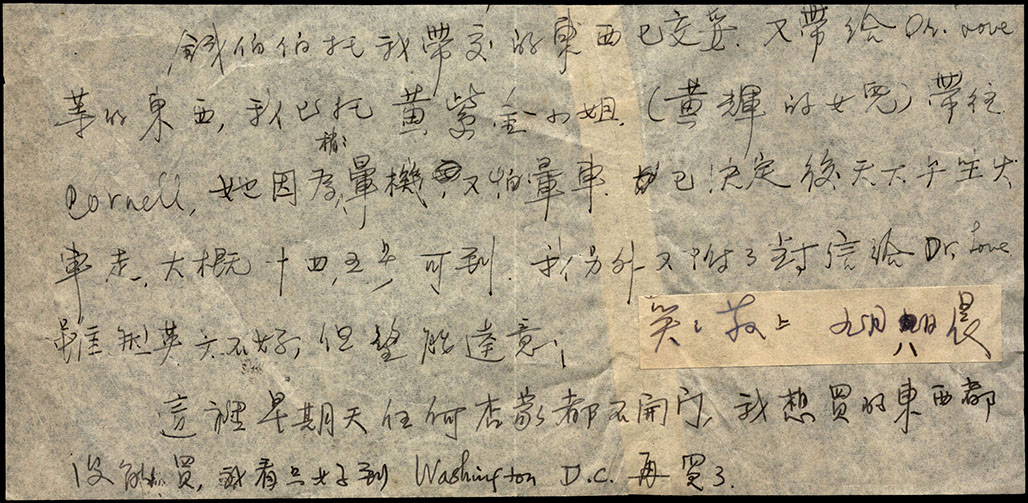 錢伯伯托我帶交的東西已交妥.又帶給Dr. Love
等的東西,我已托黃紫金小姐.(黃輝的女兒)帶往
Cornell,她因為暈機,又怕暈車.已決定後天下午坐火
車走,大概十四、五号可到.我另外又附了封信給Dr. Love
雖然英文不好,但整能達意,
笑笑敬上 九月八日晨
這裡星期天任何店家都不開门,我想買的東西都
沒能買,我看只好到Washington D.C.再買了.